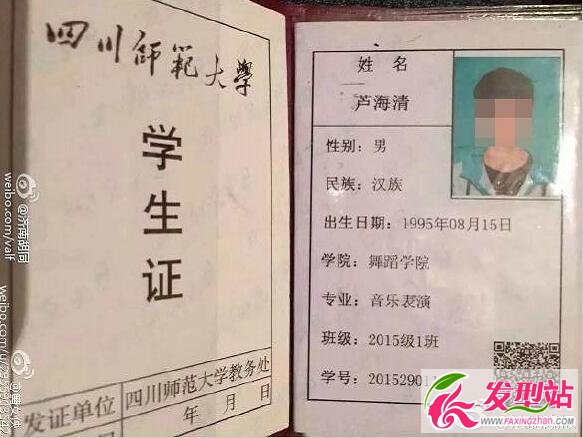 四川师範大學
学生证
发证单位
四川师范大学教务处
年 月 日
姓 名
芦海清
性别：男
民族：汉族
出生日期：1995年08月15日
学院：舞蹈学院
专业：音乐表演
班级：2015级1班
学号：20152901
发型站
WWW.FAXINGZHAN.COM
@济南胡同
weibo.com/valf